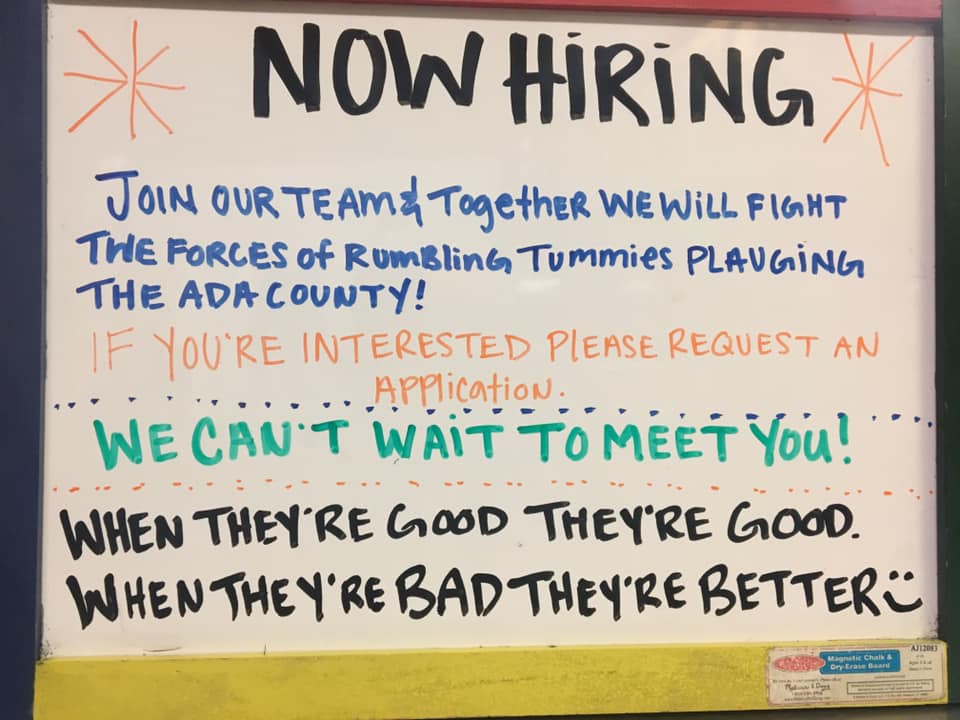 NOW HiRiNG
JOIN OUR TEAM & TogetHER WE WiLL FIGHT
THE FORCES of RumBling Tummies PLAUGiNG
THE ADA COUNTY!
IF YOU'RE INTERESTED PlEASE REQUEST AN
APPlicatioN.
WE CAN'T WAiT TO MEET You!
WHEN THEY'RE GOOD THEY'RE GOOD.
WHEN THEY'RE BAD THEY'RE BETTER :)
AJ12083
Magnetic Chalk &
Dry-Erase Board
Melissa & Doug